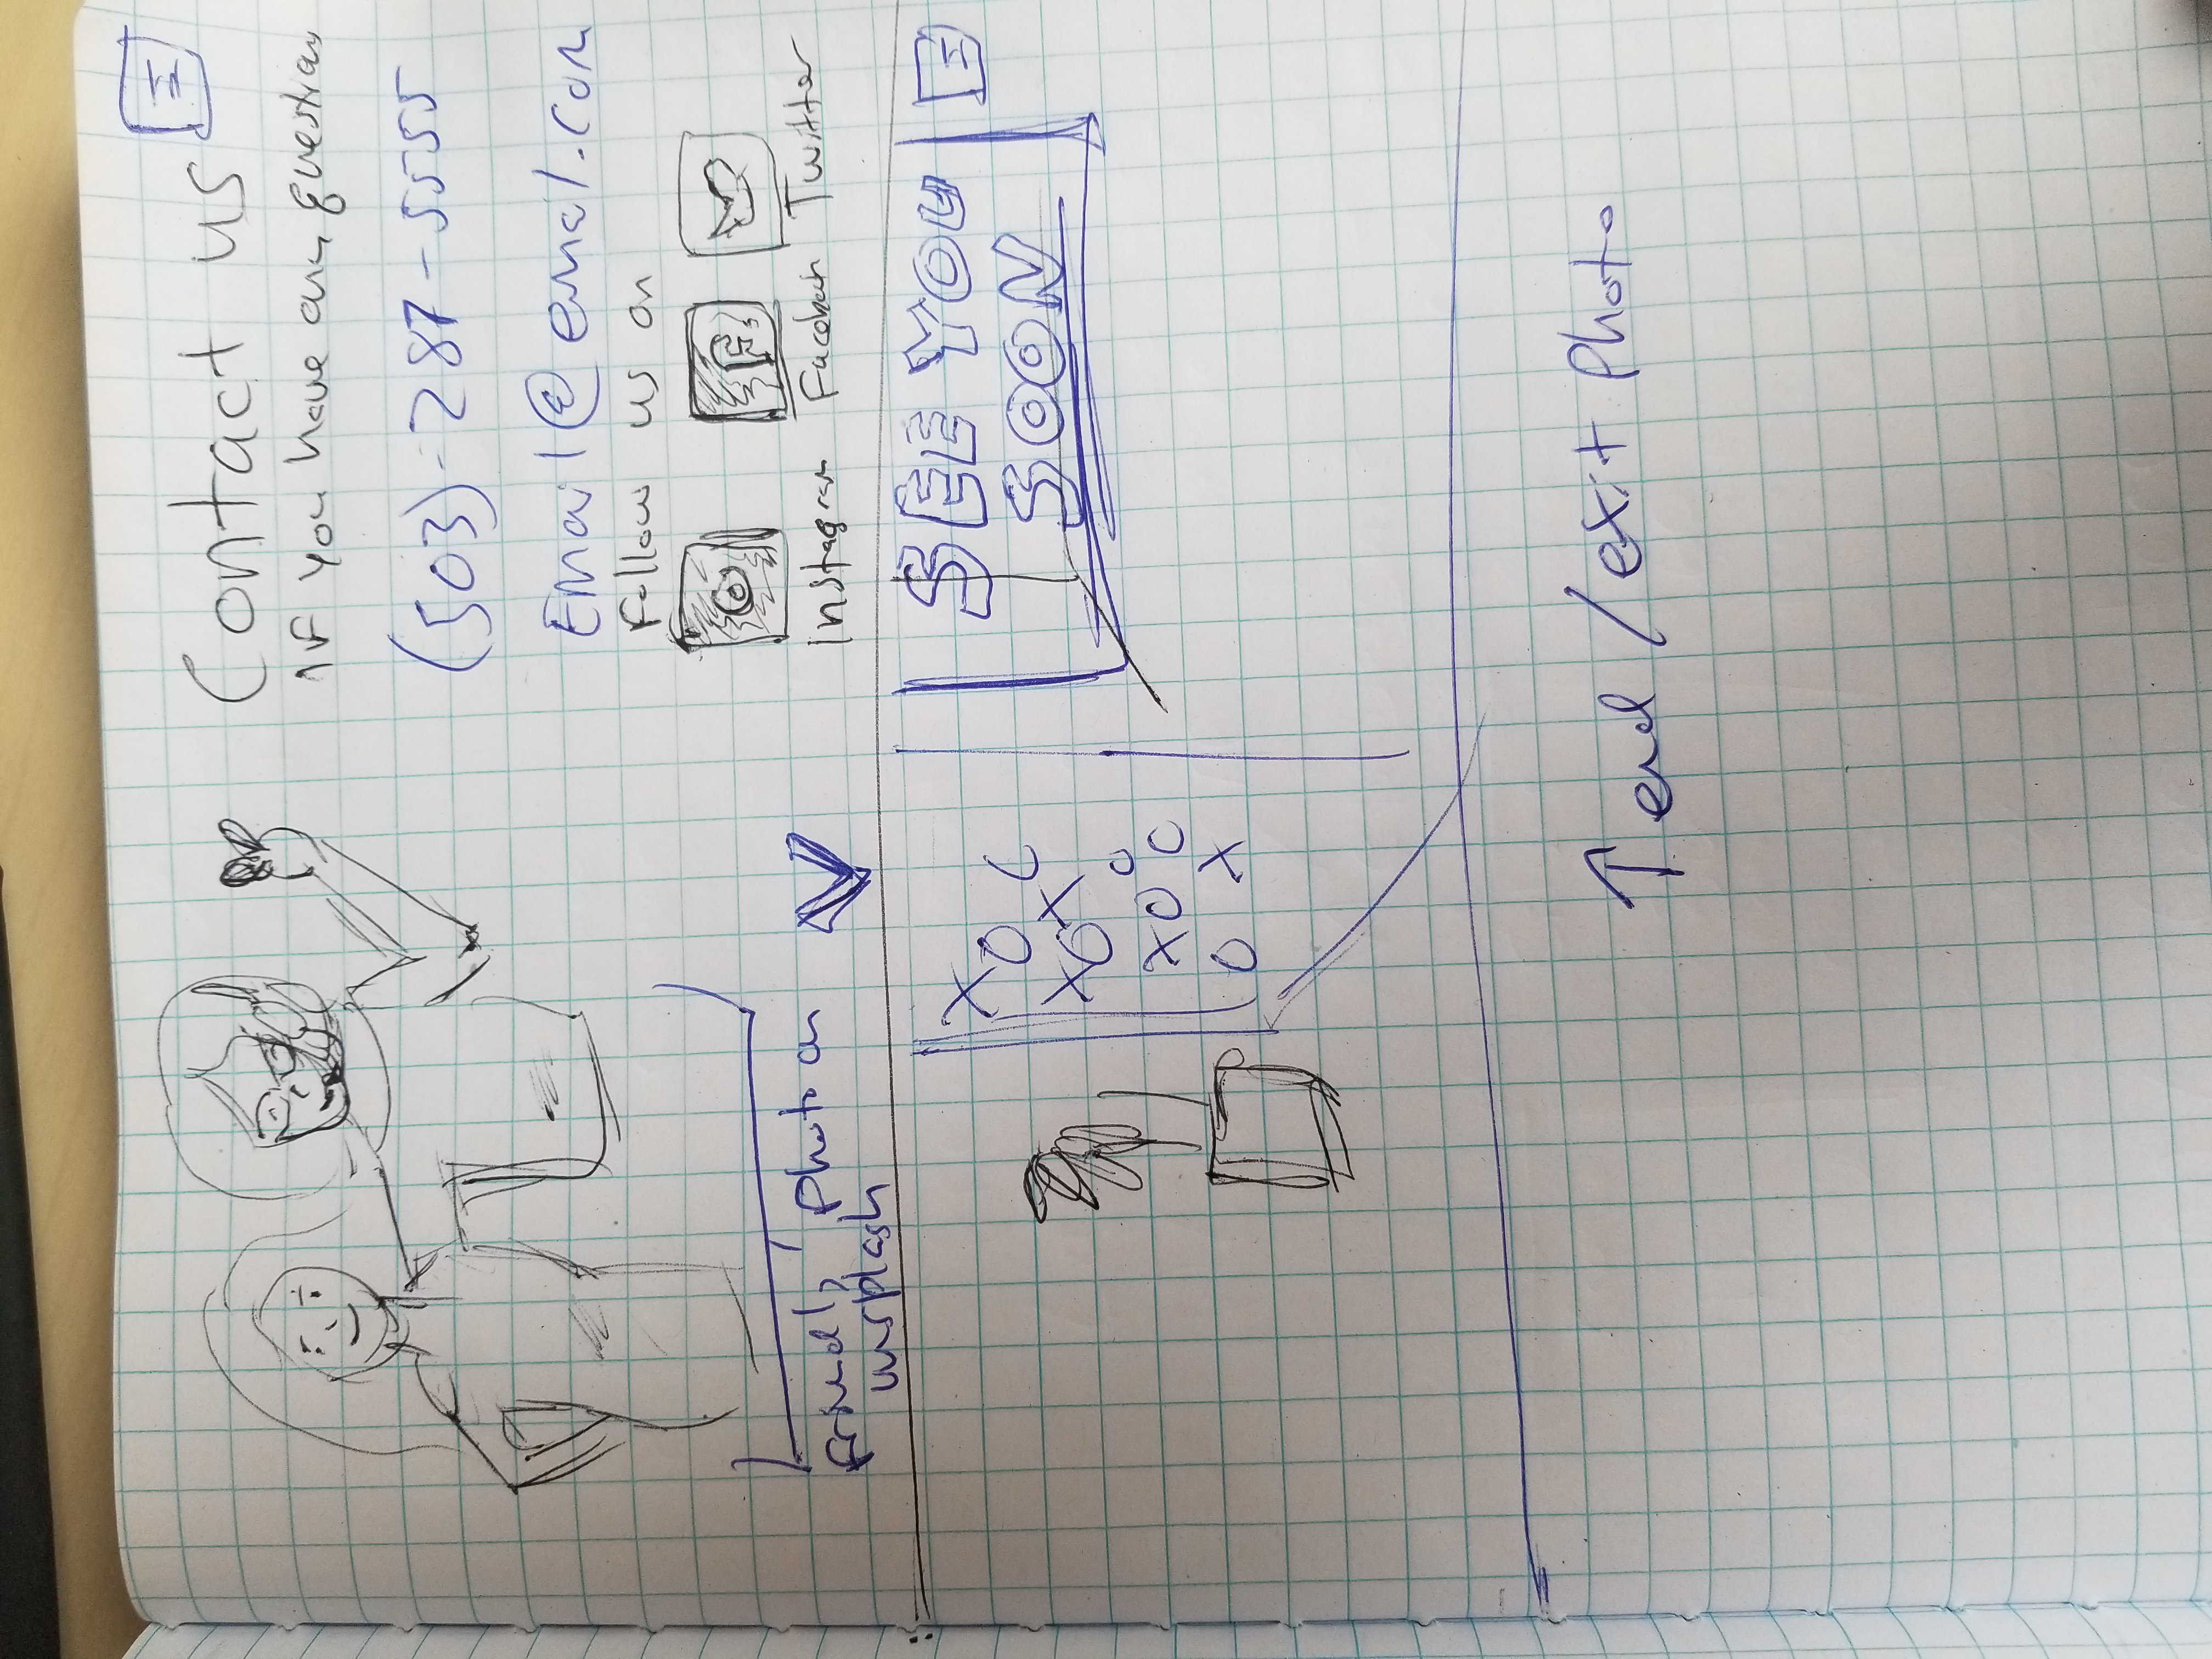 Contact us
If you have any questions
(503)-287-5555
Email@email.com
Follow us on
F
Instagram Facebook Twitter
Friendly photo on
unsplash
SEE YOU
SOON
X O C
X O X
O
X O C
O X
↑ end / exit photo